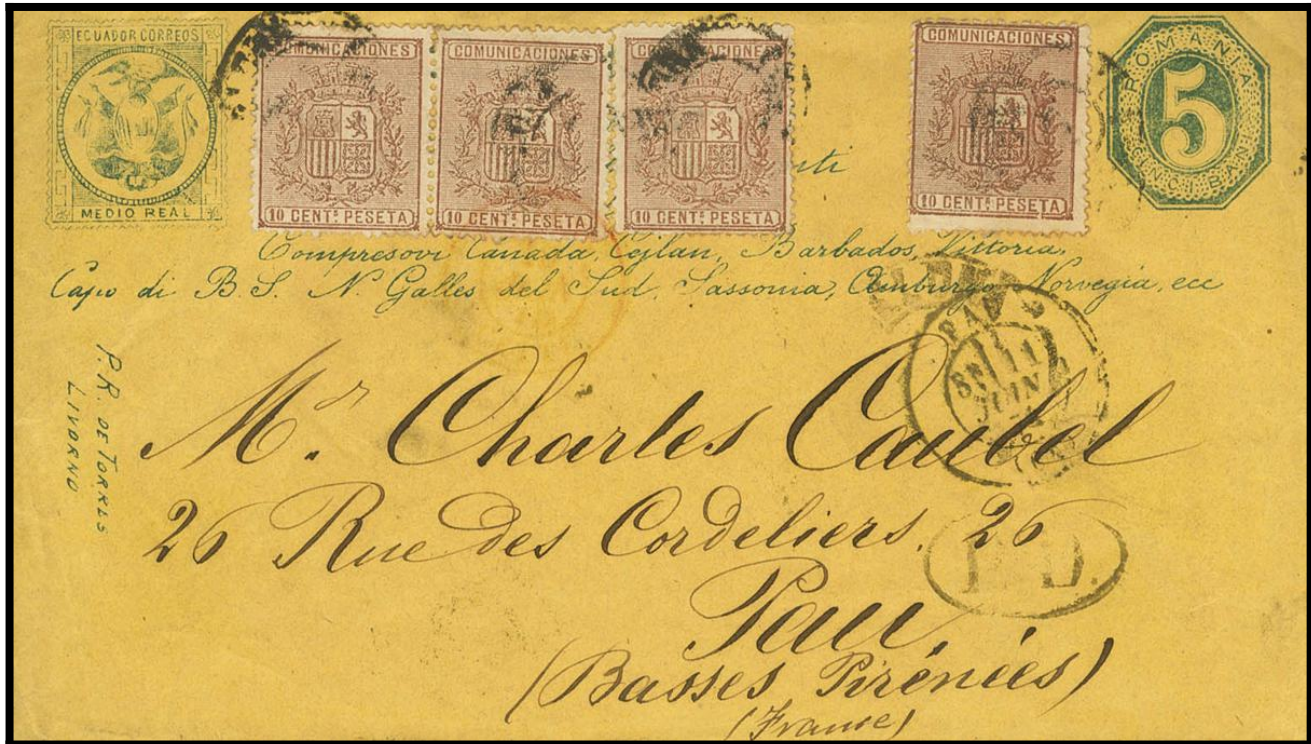 ECUADOR CORREOS
MEDIO REAL
COMUNICACIONES
10 CENT.s PESETA
COMUNICACIONES
10 CENT.s PESETA
COMUNICACIONES
10 CENT.s PESETA
COMUNICACIONES
10 CENT.s PESETA
ROMANIA
5
CINCI BANI
nti
Compresovi Canada, Cejlan, Barbados, Vittoria,
Capo di B. S. N. Galles del Sud, Sassonia, Amburgo, Norvegia, ecc
P.R. DE TORRES
LIVORNO
PAU
11
JUIN
Mr. Charles Caubel
26 Rue des Cordeliers. 26
P.D.
Pau,
(Basses Pirénées)
(France)